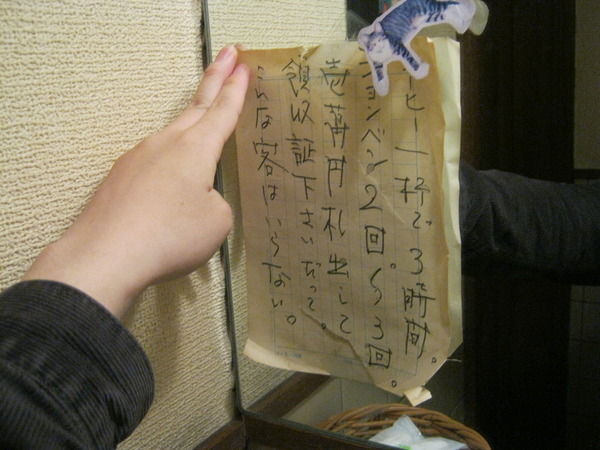 ーヒー一杯で3時間。
ションベン2回から3回。
壱萬円札出して
領収証下さいだって。
こんな客はいらない。